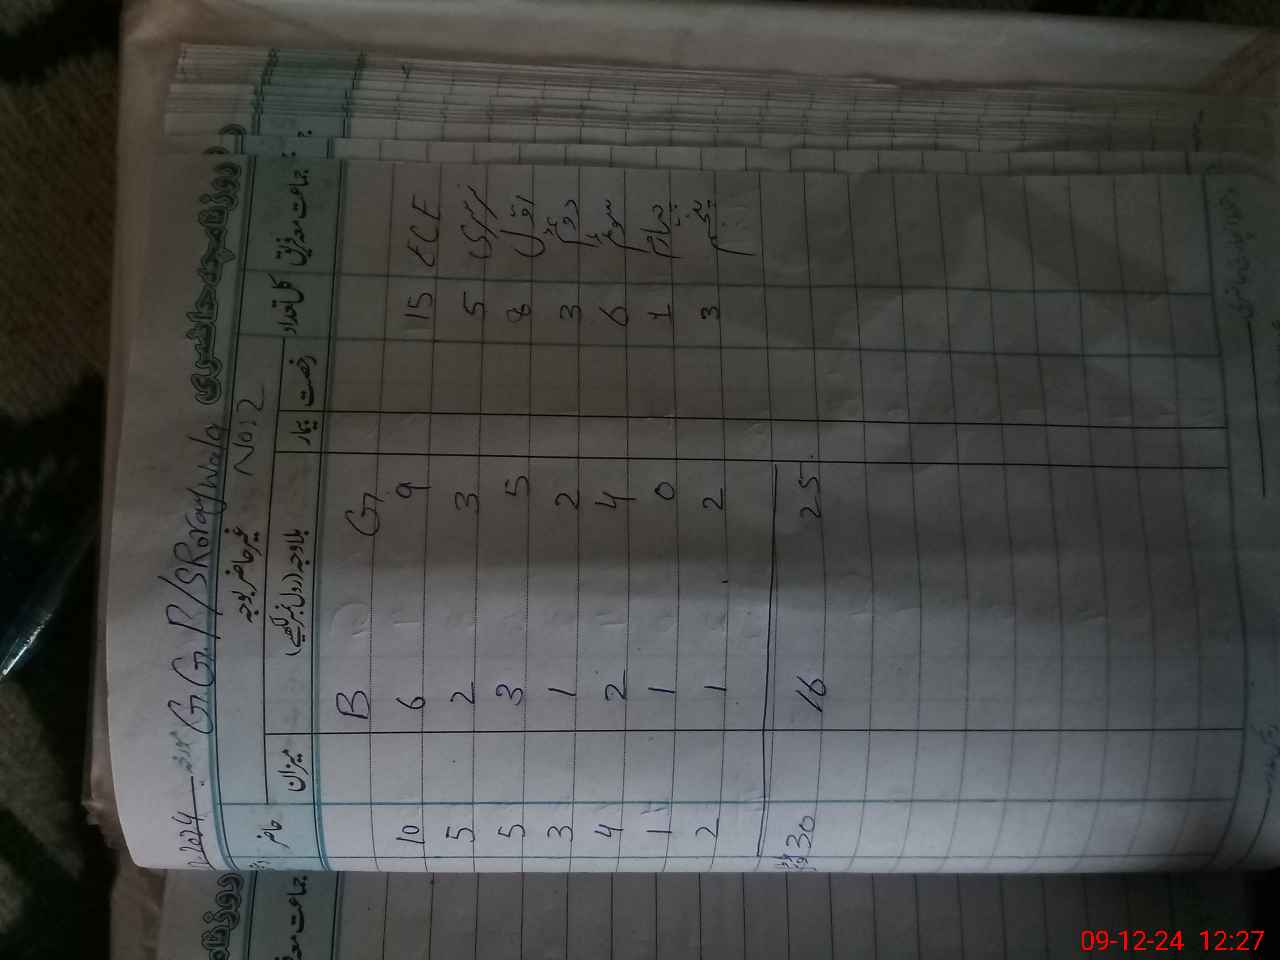 2024 مورخہ G.G.P/S Roraywala روزنامچہ حاضری
غیر حاضر بوجہ No: 2
حاضر میزان بلاوجہ (رول نمبر لکھیے) بیمار رخصت کل تعداد جماعت معہ فریق
B G
10 6 9 15 ECE
5 2 3 5 نرسری
5 3 5 8 اوّل
3 1 2 3 دوم
4 2 4 6 سوم
1 1 0 1 چہارم
2 1 2 3 پنجم
30 16 25
جماعت معہ
09-12-24 12:27